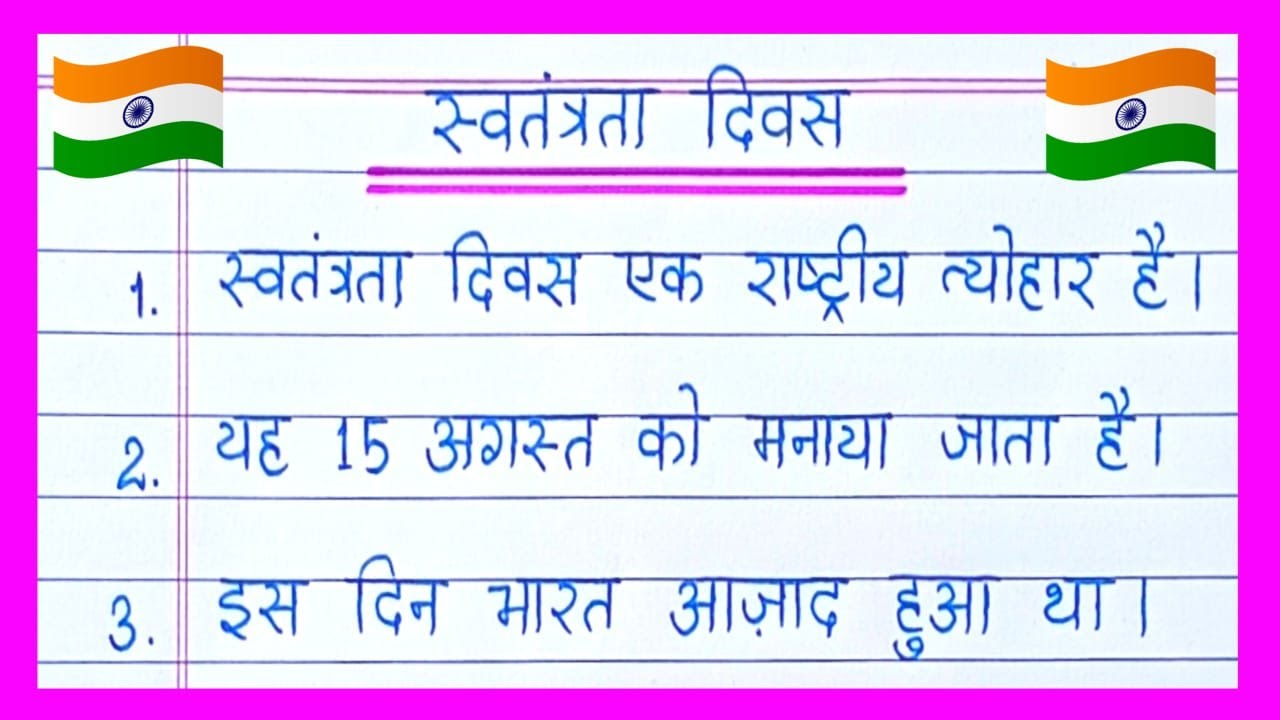 स्वतंत्रता दिवस
1. स्वतंत्रता दिवस एक राष्ट्रीय त्योहार है।
2. यह 15 अगस्त को मनाया जाता है।
3. इस दिन भारत आज़ाद हुआ था।